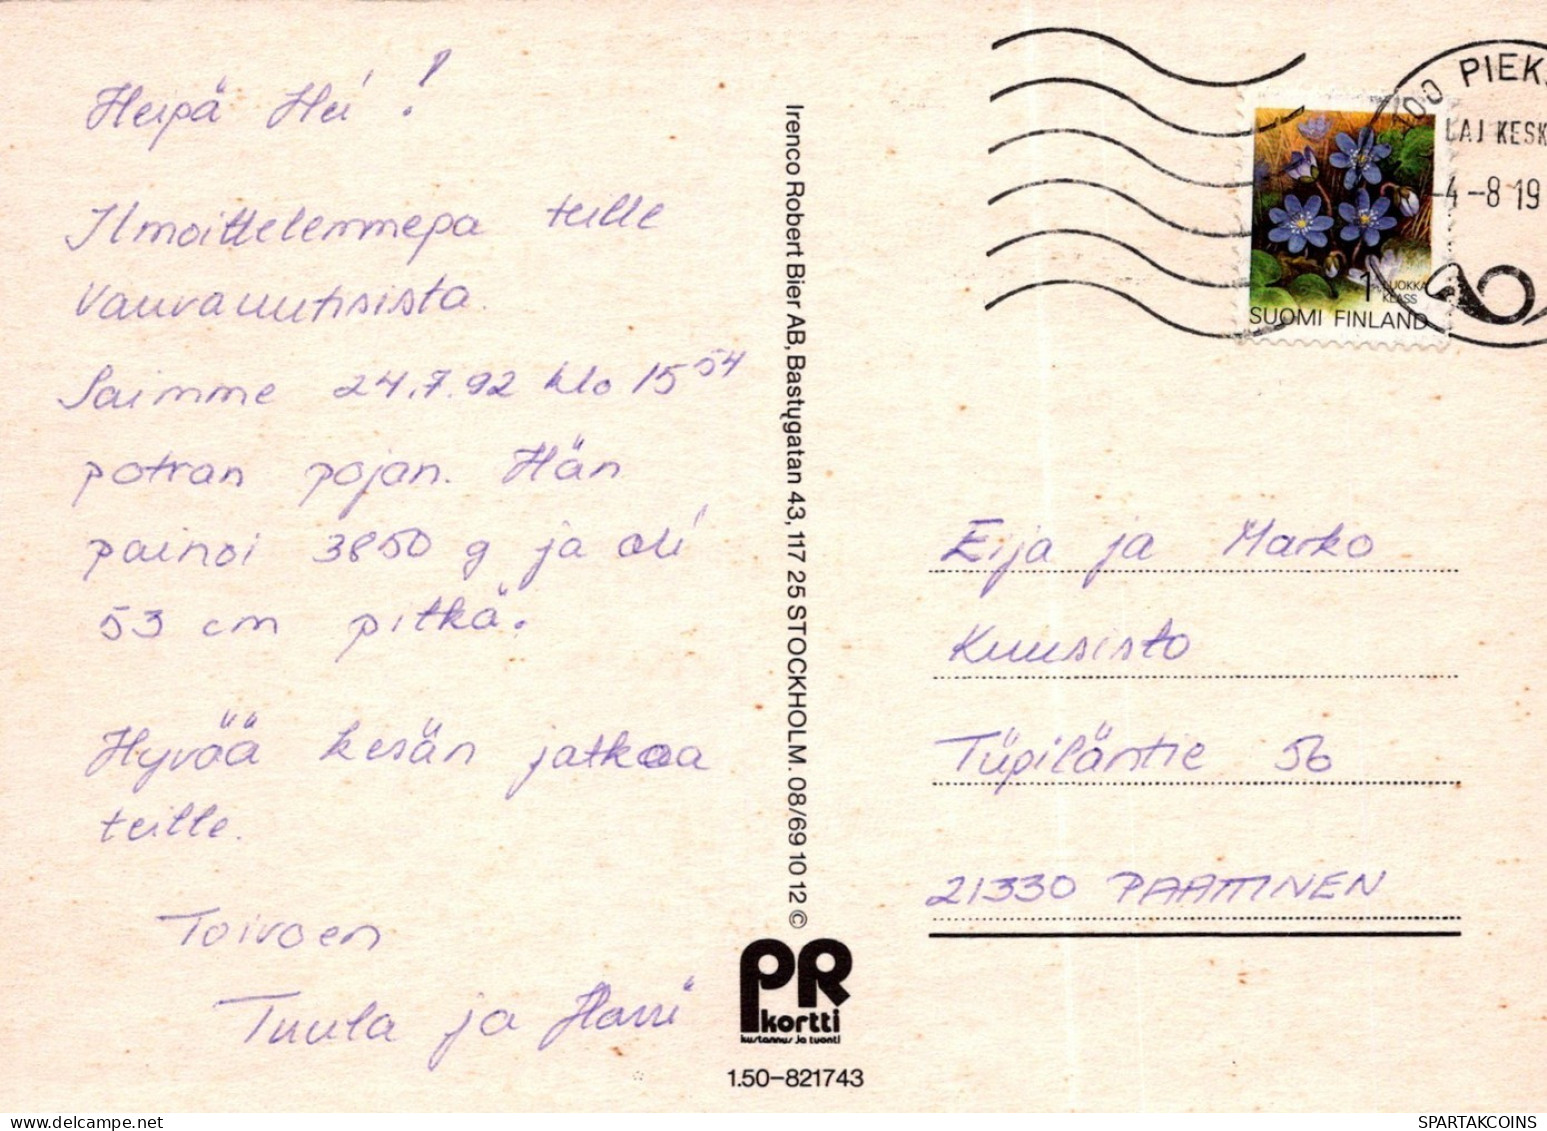 Heipä Hei!
Ilmoittelemmepa teille
vauvauutisista.
Saimme 24.7.92 klo 15 54
potran pojan. Hän
painoi 3850 g ja oli
53 cm pitkä.
Hyvää kesän jatkoa
teille.
Toivoen
Tuula ja Harri
Irenco Robert Bier AB, Bastugatan 43, 117 25 STOCKHOLM. 08/69 10 12 ©
PR
kortti
kustannus ja tuonti
1.50-821743
00 PIEK
LAJ KESK
-4-8 19
1 LUOKKA
KLASS
SUOMI FINLAND
Eija ja Marko
Kuusisto
Tiipiläntie 56
21330 PAATTINEN
SPARTAKCOINS